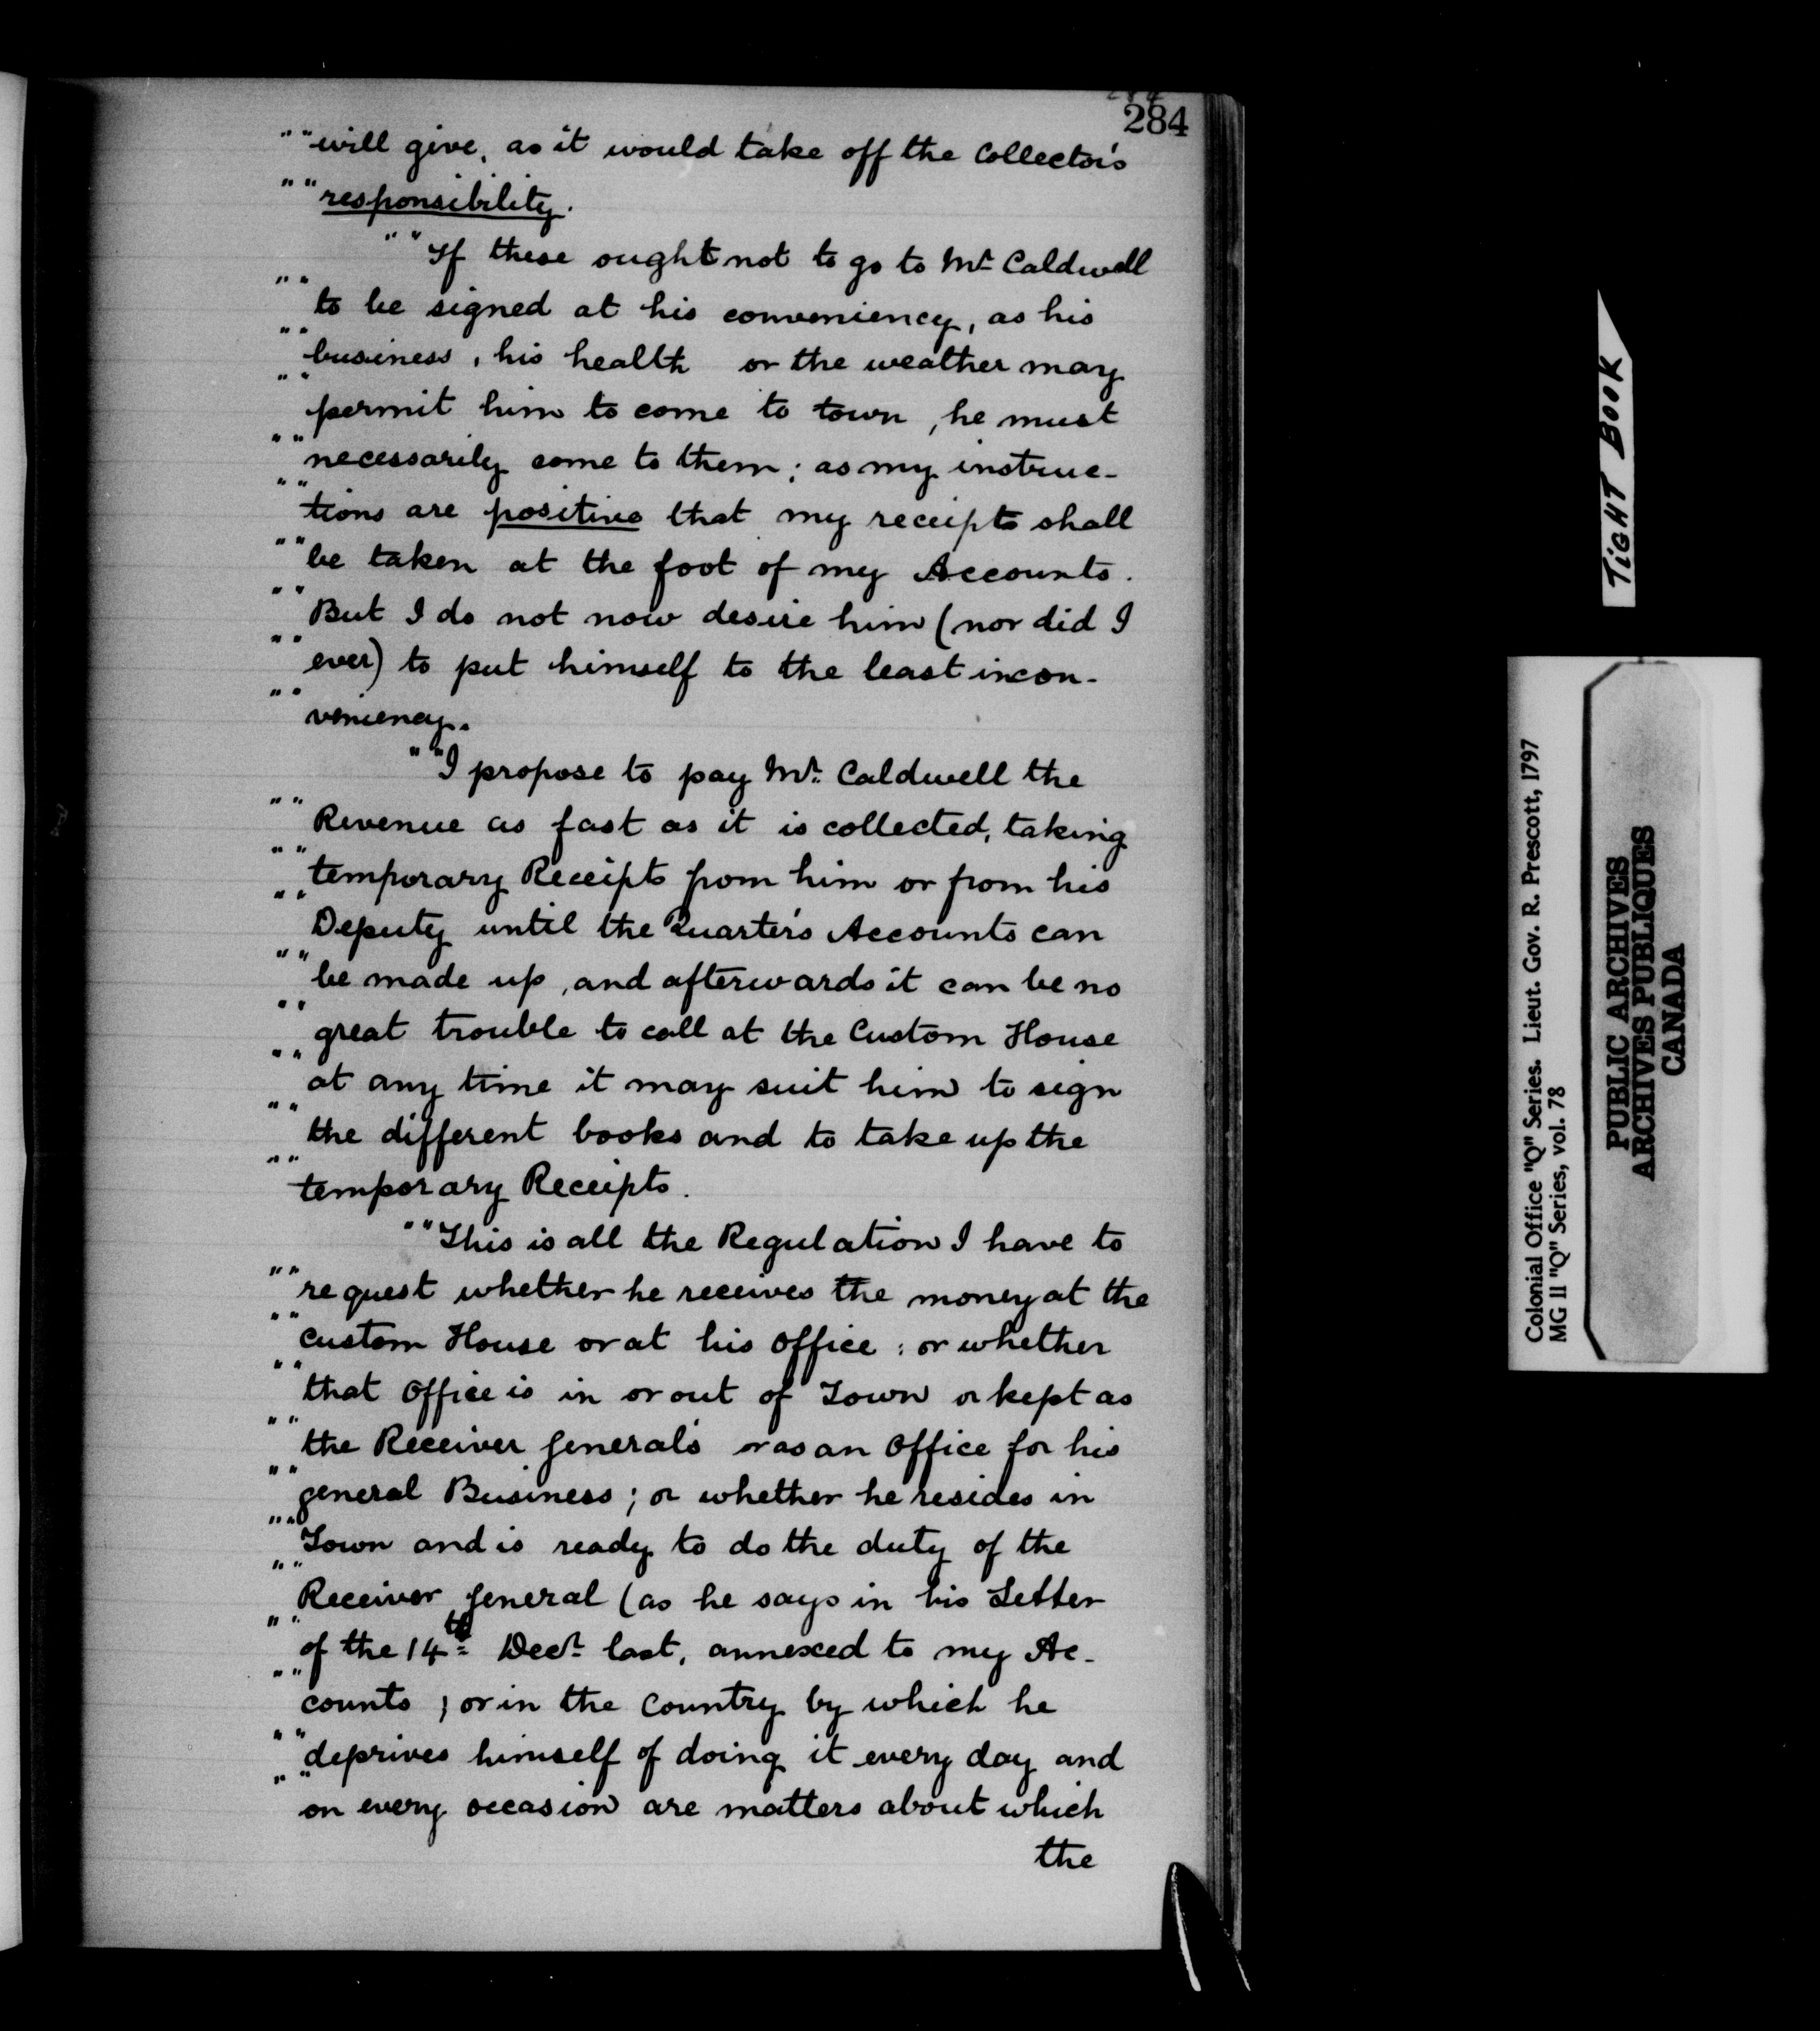 284
" "will give, as it would take off the Collector's
" "responsibility.
" "If these ought not to go to Mr. Caldwell
" "to be signed at his conveniency, as his
" "business, his health or the weather may
" "permit him to come to town, he must
" "necessarily come to them; as my instruc-
" "tions are positive that my receipts shall
" "be taken at the foot of my Accounts.
" "But I do not now desire him (nor did I
" "ever) to put himself to the least incon-
" "veniency.
" "I propose to pay Mr. Caldwell the
" "Revenue as fast as it is collected, taking
" "temporary Receipts from him or from his
" "Deputy until the Quarter's Accounts can
" "be made up, and afterwards it can be no
" "great trouble to call at the Custom House
" "at any time it may suit him to sign
" "the different books and to take up the
" "temporary Receipts.
" "This is all the Regulation I have to
" "request whether he receives the money at the
" "Custom House or at his office: or whether
" "that Office is in or out of Town or kept as
" "the Receiver General's or as an Office for his
" "general Business; or whether he resides in
" "Town and is ready to do the duty of the
" "Receiver General (as he says in his Letter
" "of the 14th Decr. last, annexed to my Ac-
" "counts; or in the Country by which he
" "deprives himself of doing it every day and
" "on every occasion are matters about which
the
TIGHT BOOK
Colonial Office "Q" Series. Lieut. Gov. R. Prescott, 1797
MG 11 "Q" Series, vol. 78
PUBLIC ARCHIVES
ARCHIVES PUBLIQUES
CANADA